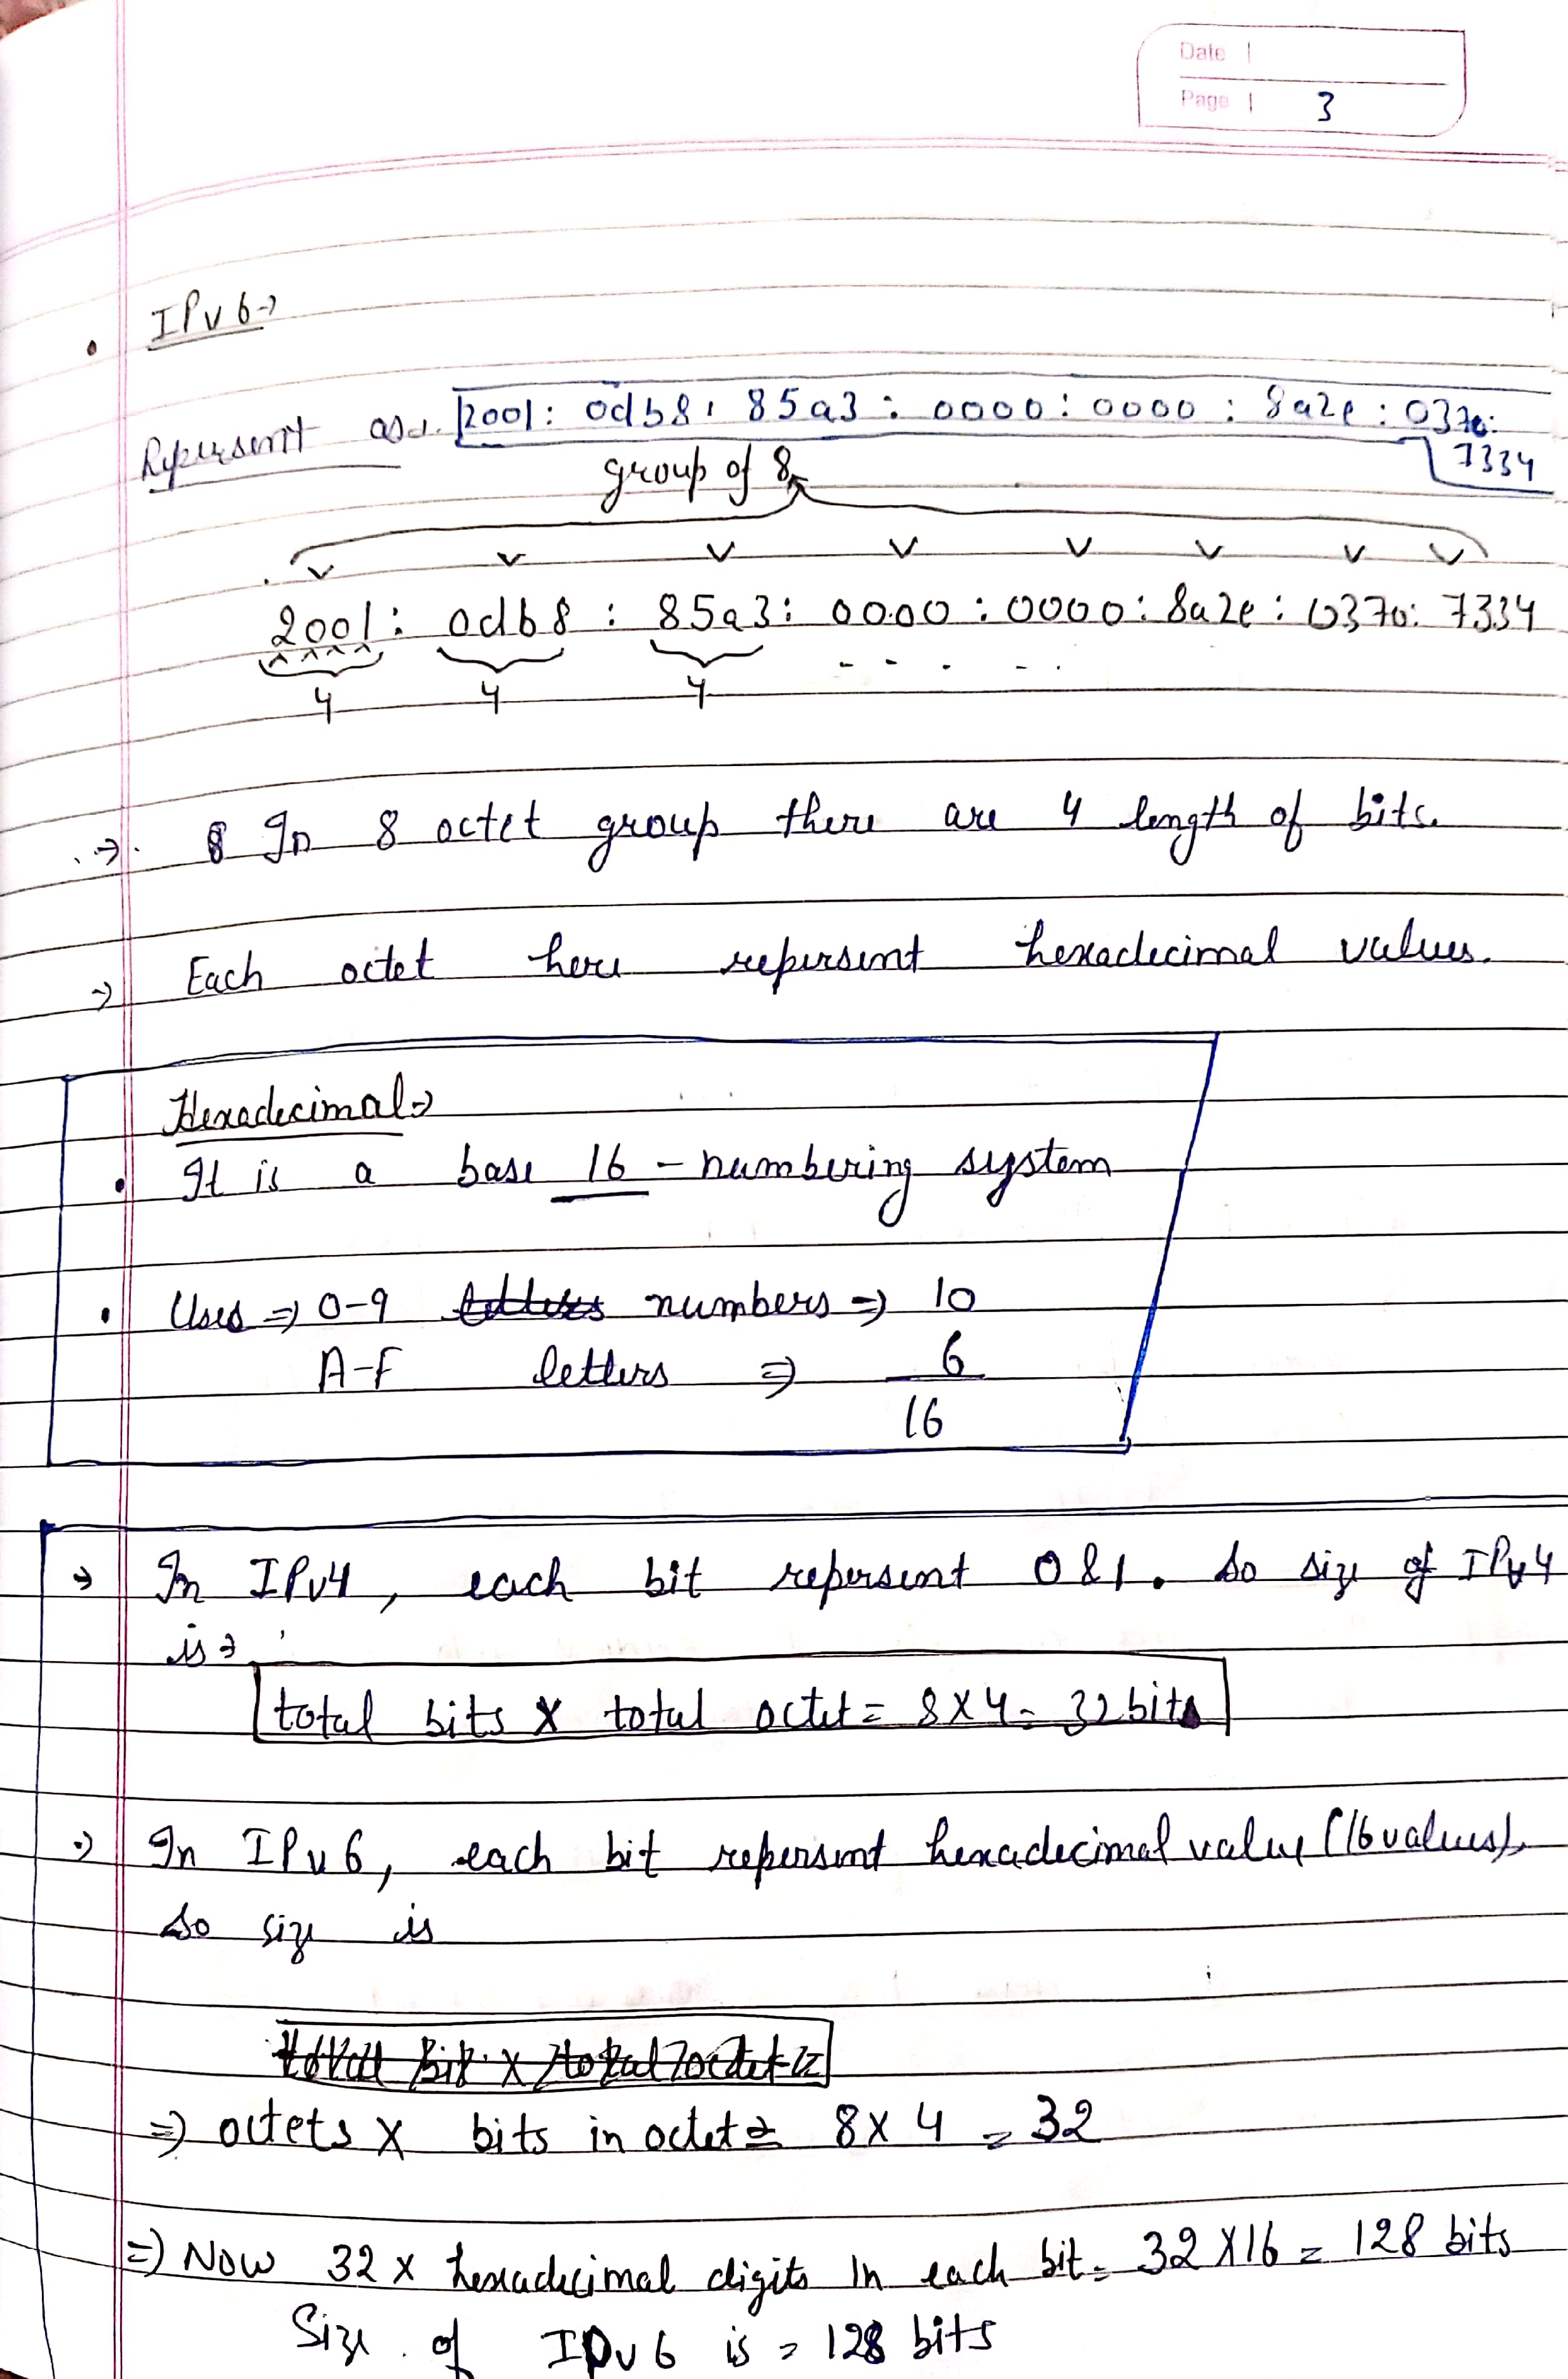 Date
Page 3
IPv6→
Repersent as→ 2001: 0db8: 85a3: 0000: 0000: 8a2e: 0370:
7334
group of 8
2001: 0db8: 85a3: 0000: 0000: 8a2e: 0370: 7334
4 4 4
→ In 8 octet group there are 4 length of bits.
→ Each octet here repersent hexadecimal values.
Hexadecimal→
• It is a base 16 - numbering system
• Uses ⇒ 0-9 numbers ⇒ 10
A-F letters ⇒ 6
16
→ In IPv4, each bit repersent 0 & 1. So size of IPv4
is→
total bits x total octet = 8x4 = 32 bits
→ In IPv6, each bit repersent hexadecimal value (16 values).
So size is
total bit x total octet =
⇒ octets x bits in octet = 8x4 = 32
⇒ Now 32 x hexadecimal digits in each bit = 32 x 16 = 128 bits
Size of IPv6 is = 128 bits